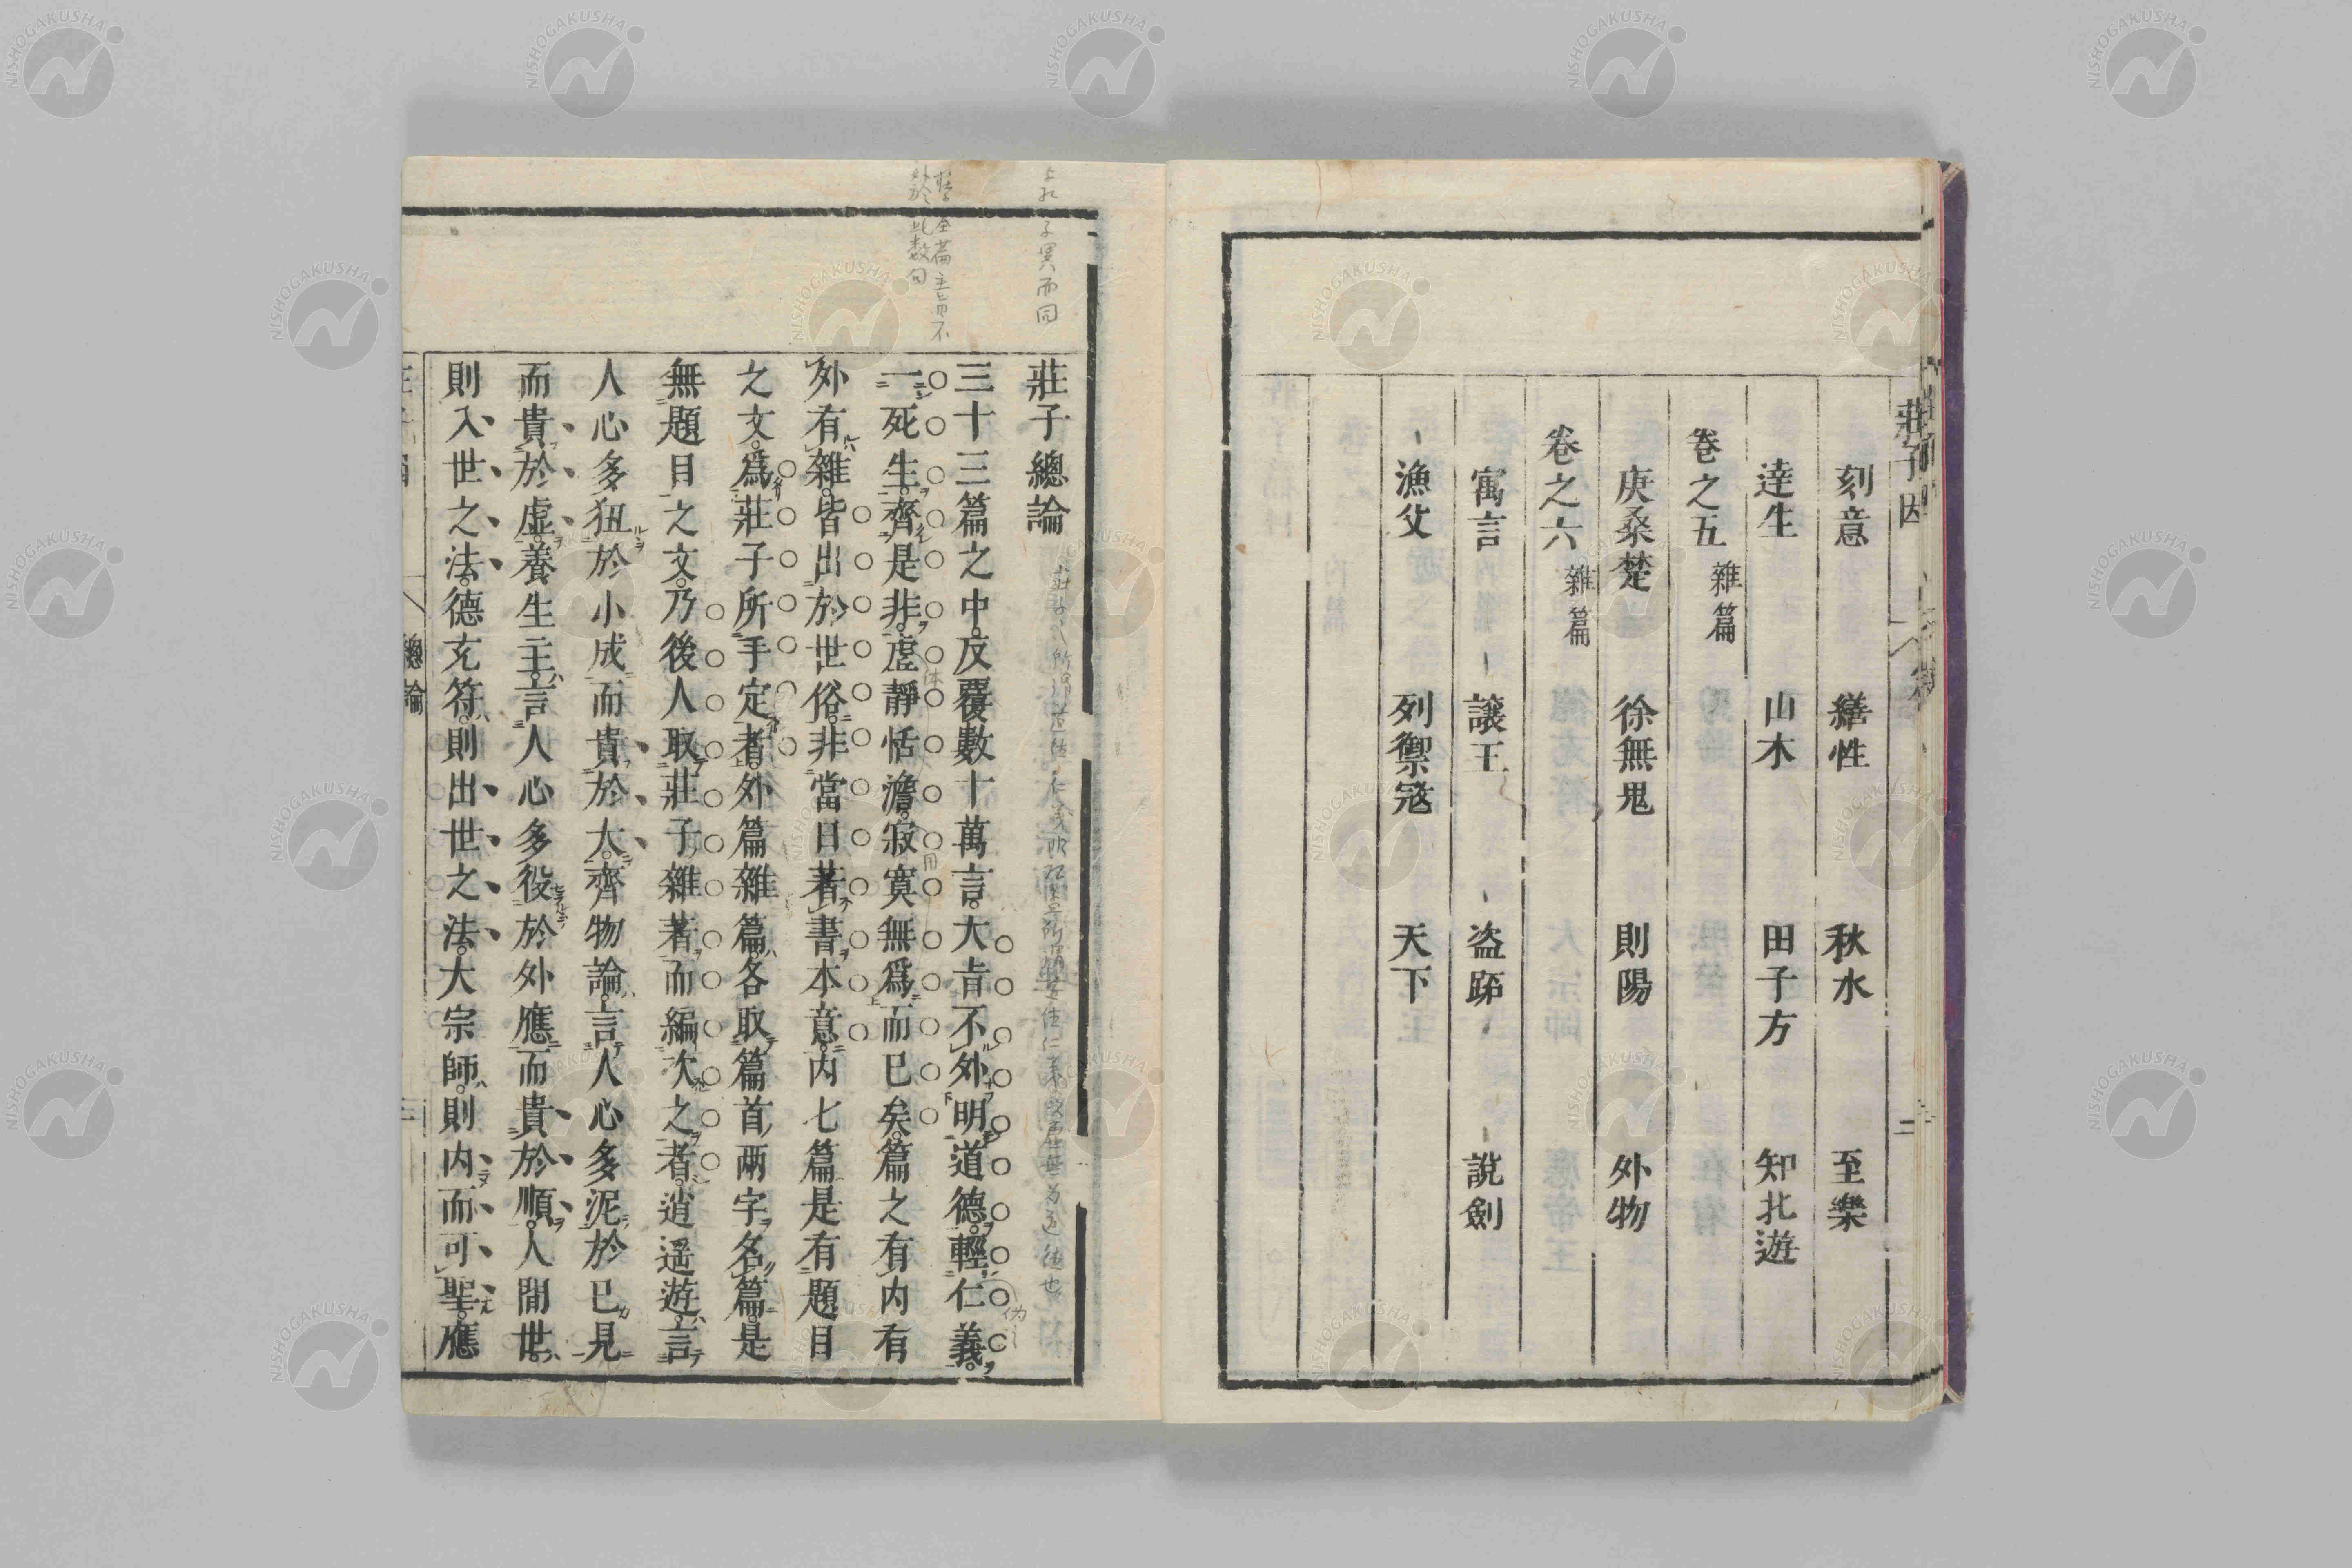 莊子因
刻意　繕性　秋水　至樂
達生　山木　田子方　知北遊
卷之五　雜篇
庚桑楚　徐無鬼　則陽　外物
卷之六　雜篇
寓言　讓王　盜跖　說劍
漁父　列禦寇　天下
二
莊子總論
三十三篇之中。反覆數十萬言。大㫖不外明道德。輕仁義。
一死生。齊是非。虛靜恬澹。寂寞無爲而已矣。篇之有内有
外有雜。皆出於世俗。非當日著書本意。内七篇是有題目
之文。爲莊子所手定者。外篇雜篇。各取篇首兩字名篇。是
無題目之文。乃後人取莊子雜著而編次之者。逍遙遊。言
人心多狃於小成而貴於大。齊物論。言人心多泥於已見
而貴於虛。養生主。言人心多役於外應而貴於順。人間世。
則入世之法。德充符。則出世之法。大宗師。則内而可聖。應
總論
NISHOGAKUSHA